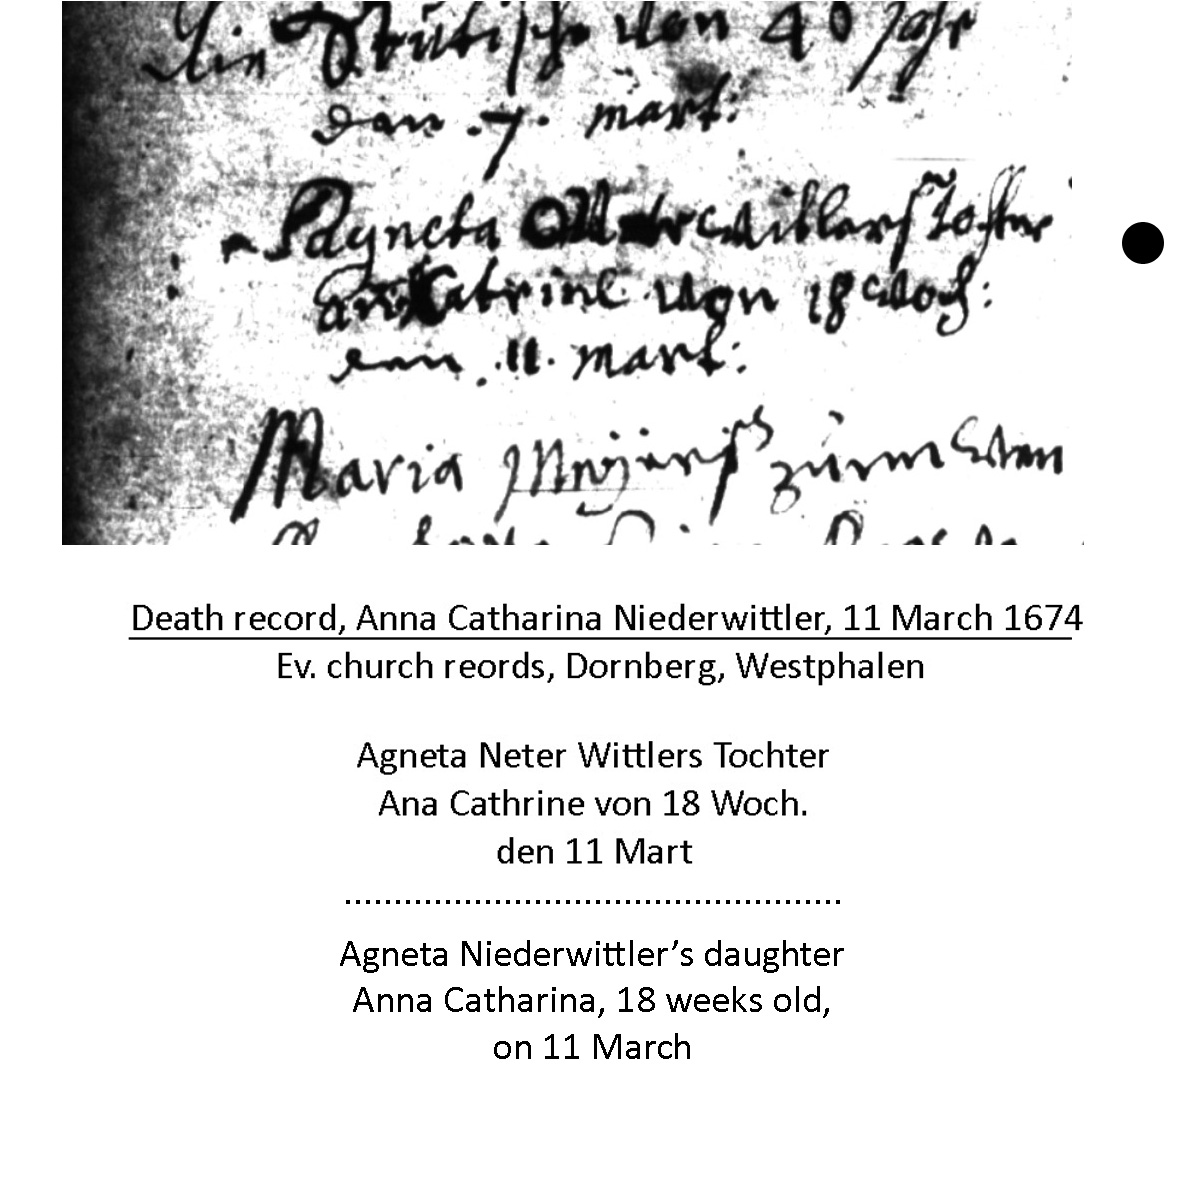 von 40 Jahr
den .7. mart:
Agneta Neterwittlers Tochter
ana Catrine von 18 woch:
den .11. mart:
Maria
Death record, Anna Catharina Niederwittler, 11 March 1674
Ev. church reords, Dornberg, Westphalen
Agneta Neter Wittlers Tochter
Ana Cathrine von 18 Woch.
den 11 Mart
Agneta Niederwittler’s daughter
Anna Catharina, 18 weeks old,
on 11 March